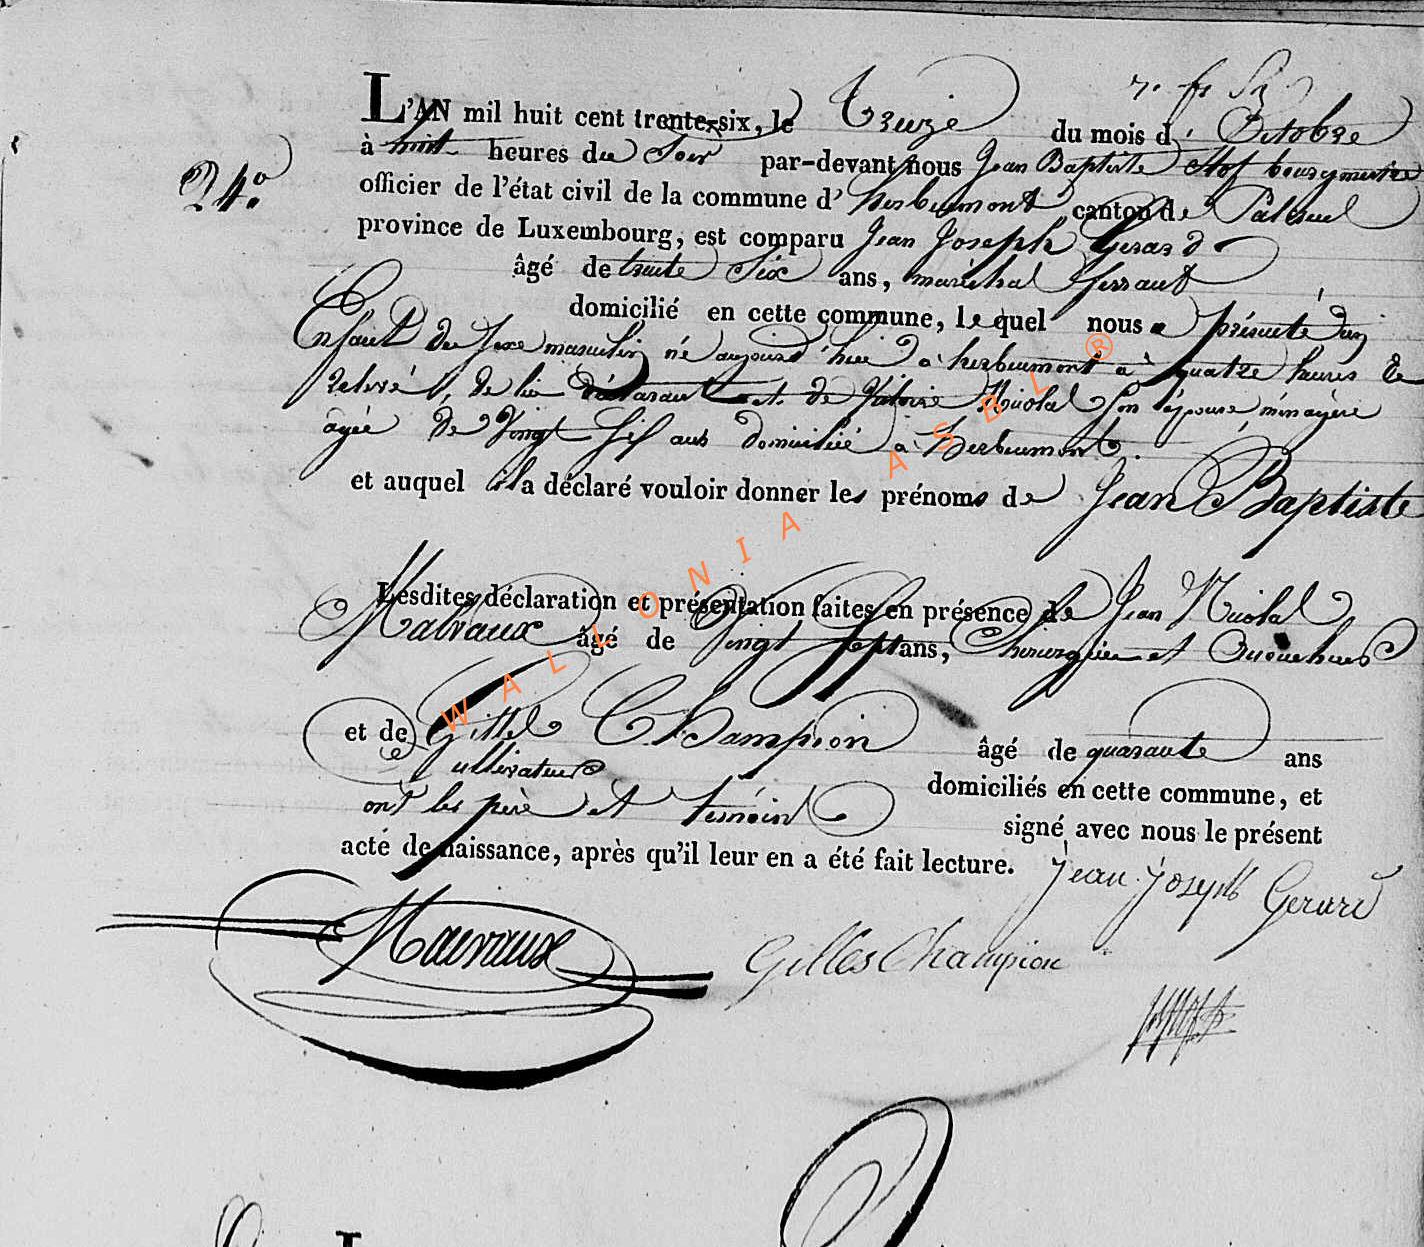 L'AN mil huit cent trente-six, le Treize du mois d' Octobre
24°
à huit heures du Soir par-devant nous Jean Baptiste bourgmestre
officier de l'état civil de la commune d' herbeumont canton de Paliseul
province de Luxembourg, est comparu Jean Joseph Gerard
âgé de trente Six ans, maréchal ferraut
domicilié en cette commune, lequel nous a présenté un
Enfant du Sexe masculin né aujourd'hui à herbeumont à quatre heures de
relevé, de lui déclarant et de Nicolas Son épouse ménagère
agée de Vingt ans domiciliée à Herbeumont.
et auquel il a déclaré vouloir donner les prénoms de Jean Baptiste
Lesdites déclaration et présentation faites en présence de Jean Nicolas
Malvaux âgé de Vingt Sept ans, Chirurgien et Accoucheur
et de Gilles Champion âgé de quarante ans
cultivateur domiciliés en cette commune, et
ont les père et témoins signé avec nous le présent
acte de naissance, après qu'il leur en a été fait lecture.
Jean Joseph Gerard
Mauvaux Gilles Champion
WALLONIA ASBL ®